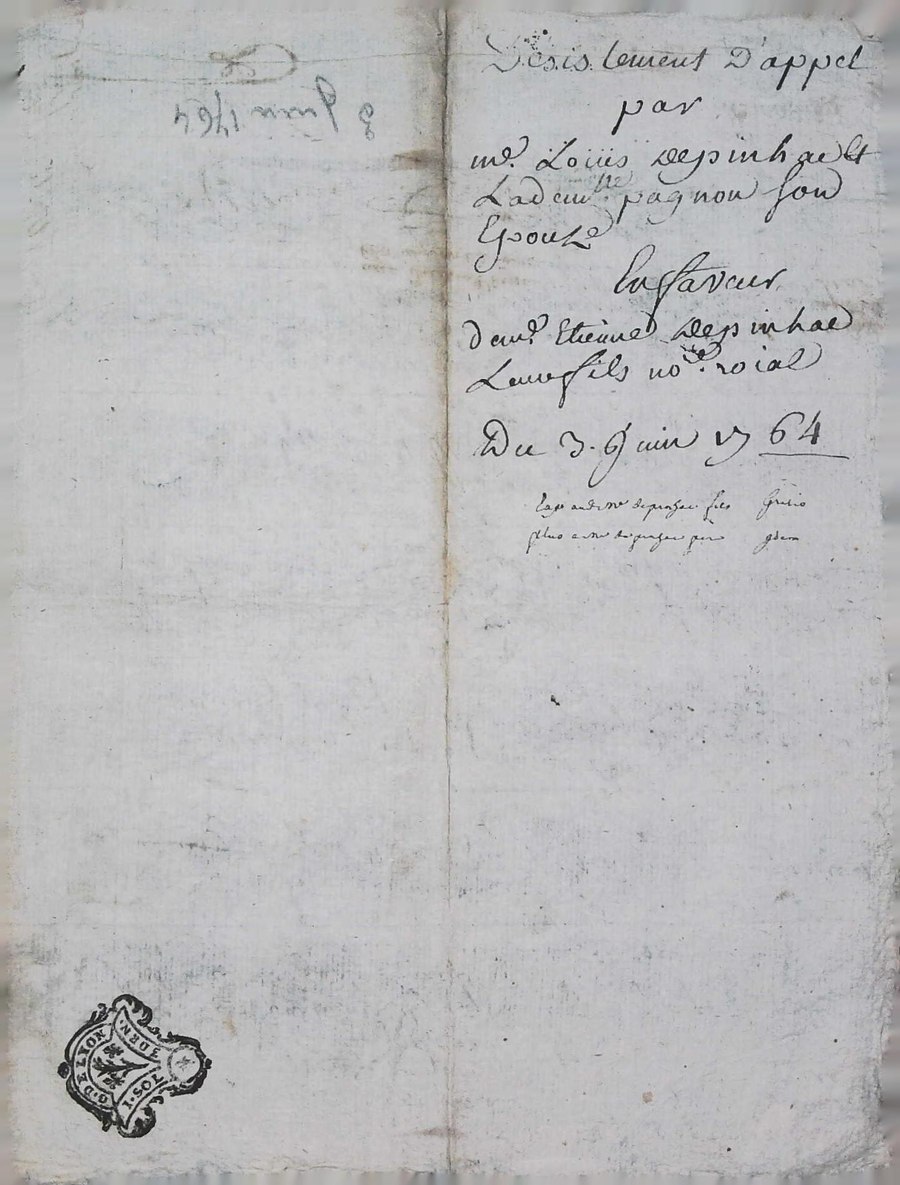 3 Juin 1764
Desistement D'appel
par
me. Loüis Depinhac Et
Lademlle. pagnon son
Epouze
En faveur
de me. Etienne Depinhac
Leur fils nore. roial
Du 3. Juin 1764
fils
pere
G. DE LYON
1. SOL